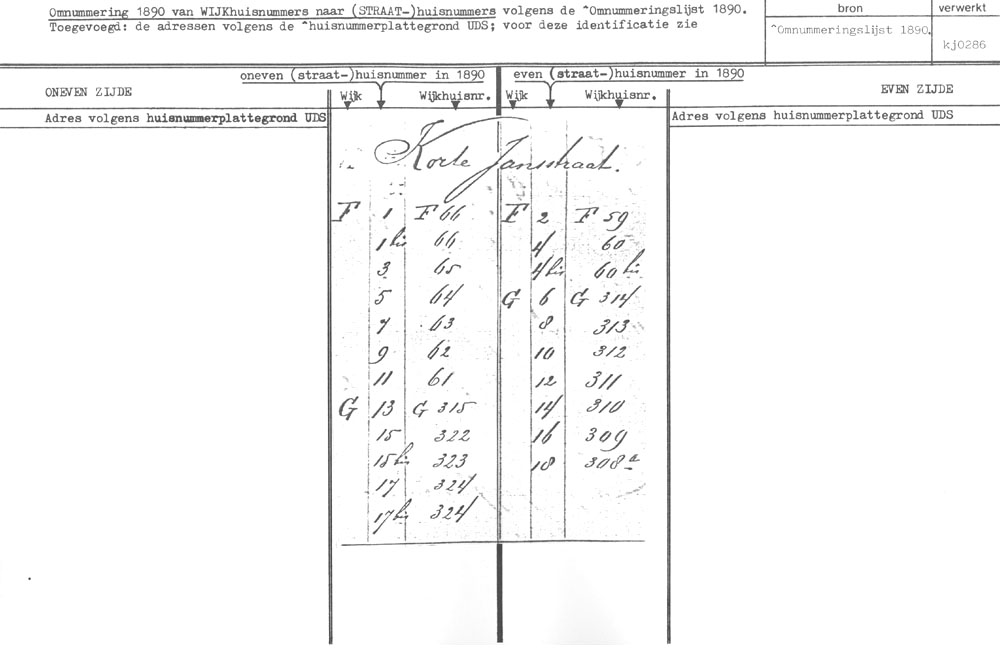 Omnummering 1890 van WIJKhuisnummers naar (STRAAT-)huisnummers volgens de ^Omnummeringslijst 1890.
Toegevoegd: de adressen volgens de ^huisnummerplattegrond UDS; voor deze identificatie zie
bron verwerkt
^Omnummeringslijst 1890. kj0286
oneven (straat-)huisnummer in 1890 even (straat-)huisnummer in 1890
ONEVEN ZIJDE Wijk Wijkhuisnr. Wijk Wijkhuisnr. EVEN ZIJDE
Adres volgens huisnummerplattegrond UDS Adres volgens huisnummerplattegrond UDS
Korte Jansstraat.
F 1 F 66 F 2 F 59
1 bis 66 4 60
3 65 4 bis 60 bis
5 64 G 6 G 314
7 63 8 313
9 62 10 312
11 61 12 311
G 13 G 315 14 310
15 322 16 309
15 bis 323 18 308 a
17 324
17 bis 324